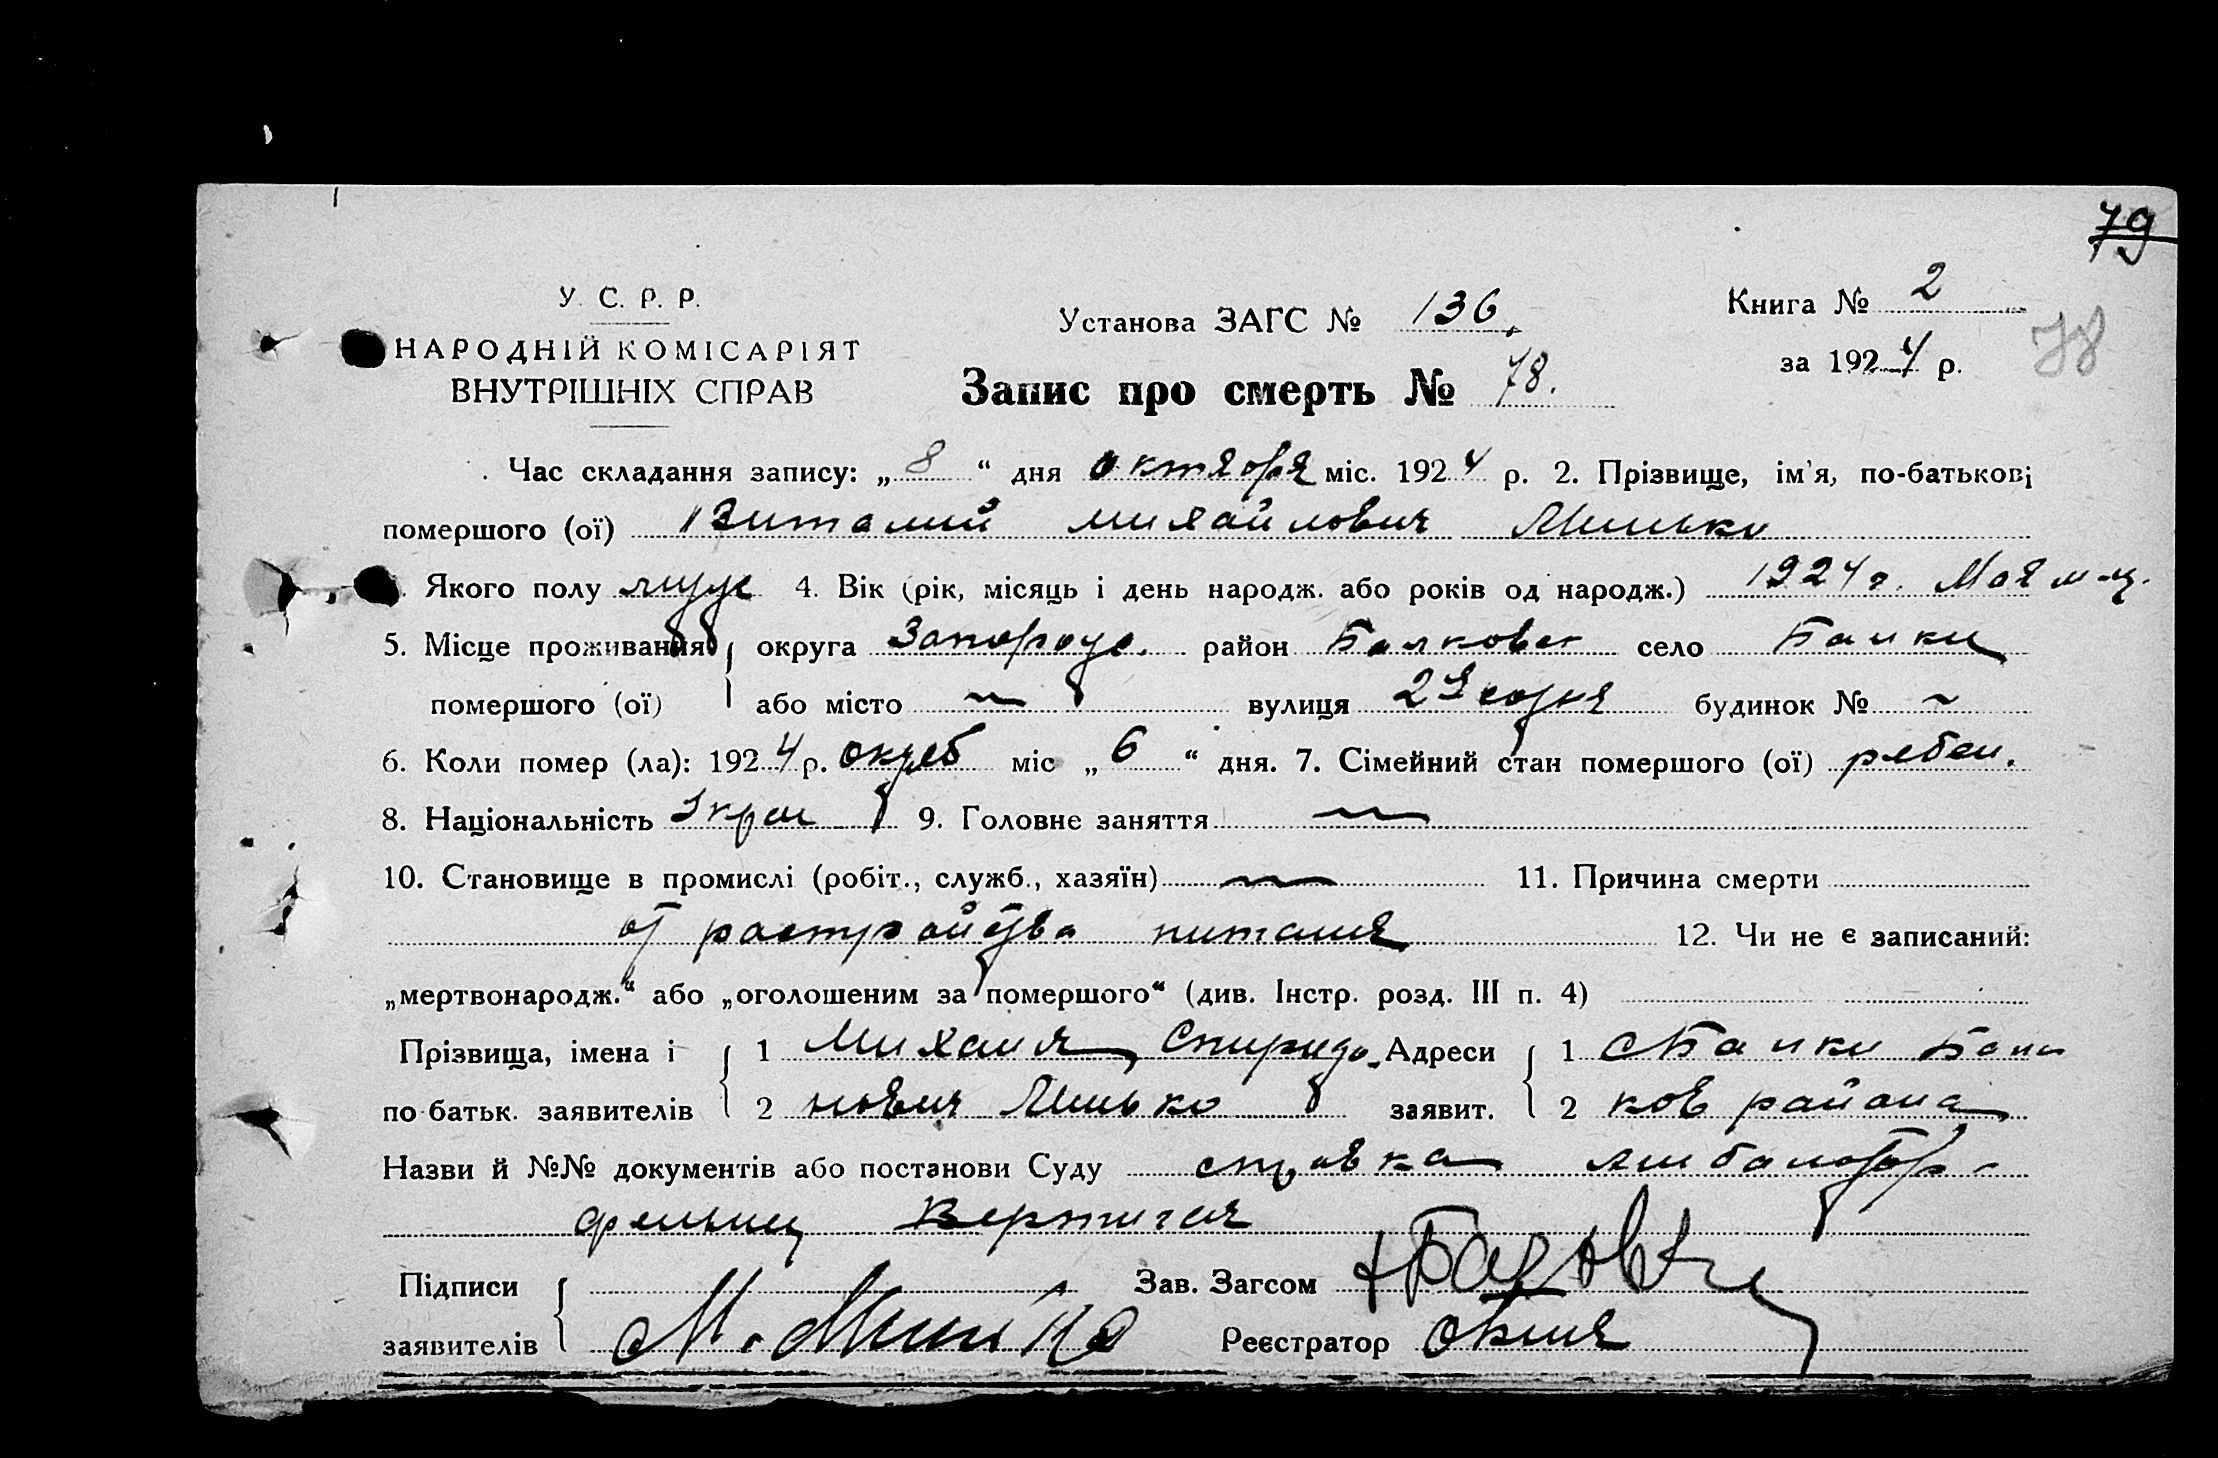 79
У. С. Р. Р.
НАРОДНІЙ КОМІСАРІЯТ
ВНУТРІШНІХ СПРАВ
Установа ЗАГС № 136.
Запис про смерть № 78.
Книга № 2
за 1924 р.
78
Час складання запису: „8“ дня октября міс. 1924 р. 2. Прізвище, ім'я, по-батькові
помершого (ої) Виталий Михайлович Минько
Якого полу муж 4. Вік (рік, місяць і день народж. або років од народж.) 1924 г. Мая м-ц.
5. Місце проживання округа Запорож. район Балковск село Балки
помершого (ої) або місто вулиця будинок №
6. Коли помер (ла): 1924 р. міс „6“ дня. 7. Сімейний стан помершого (ої) ребен.
8. Національність Украи 9. Головне заняття
10. Становище в промислі (робіт., служб., хазяїн) 11. Причина смерти
от растройства питания 12. Чи не є записаний:
„мертвонародж.“ або „оголошеним за помершого“ (див. Інстр. розд. III п. 4)
Прізвища, імена і 1 Михаил Спиридо- Адреси 1 с Балки Бал
по-батьк. заявителів 2 нович Минько заявит. 2 ков района
Назви й №№ документів або постанови Суду справка
Підписи Зав. Загсом
заявителів М. Минько Реєстратор